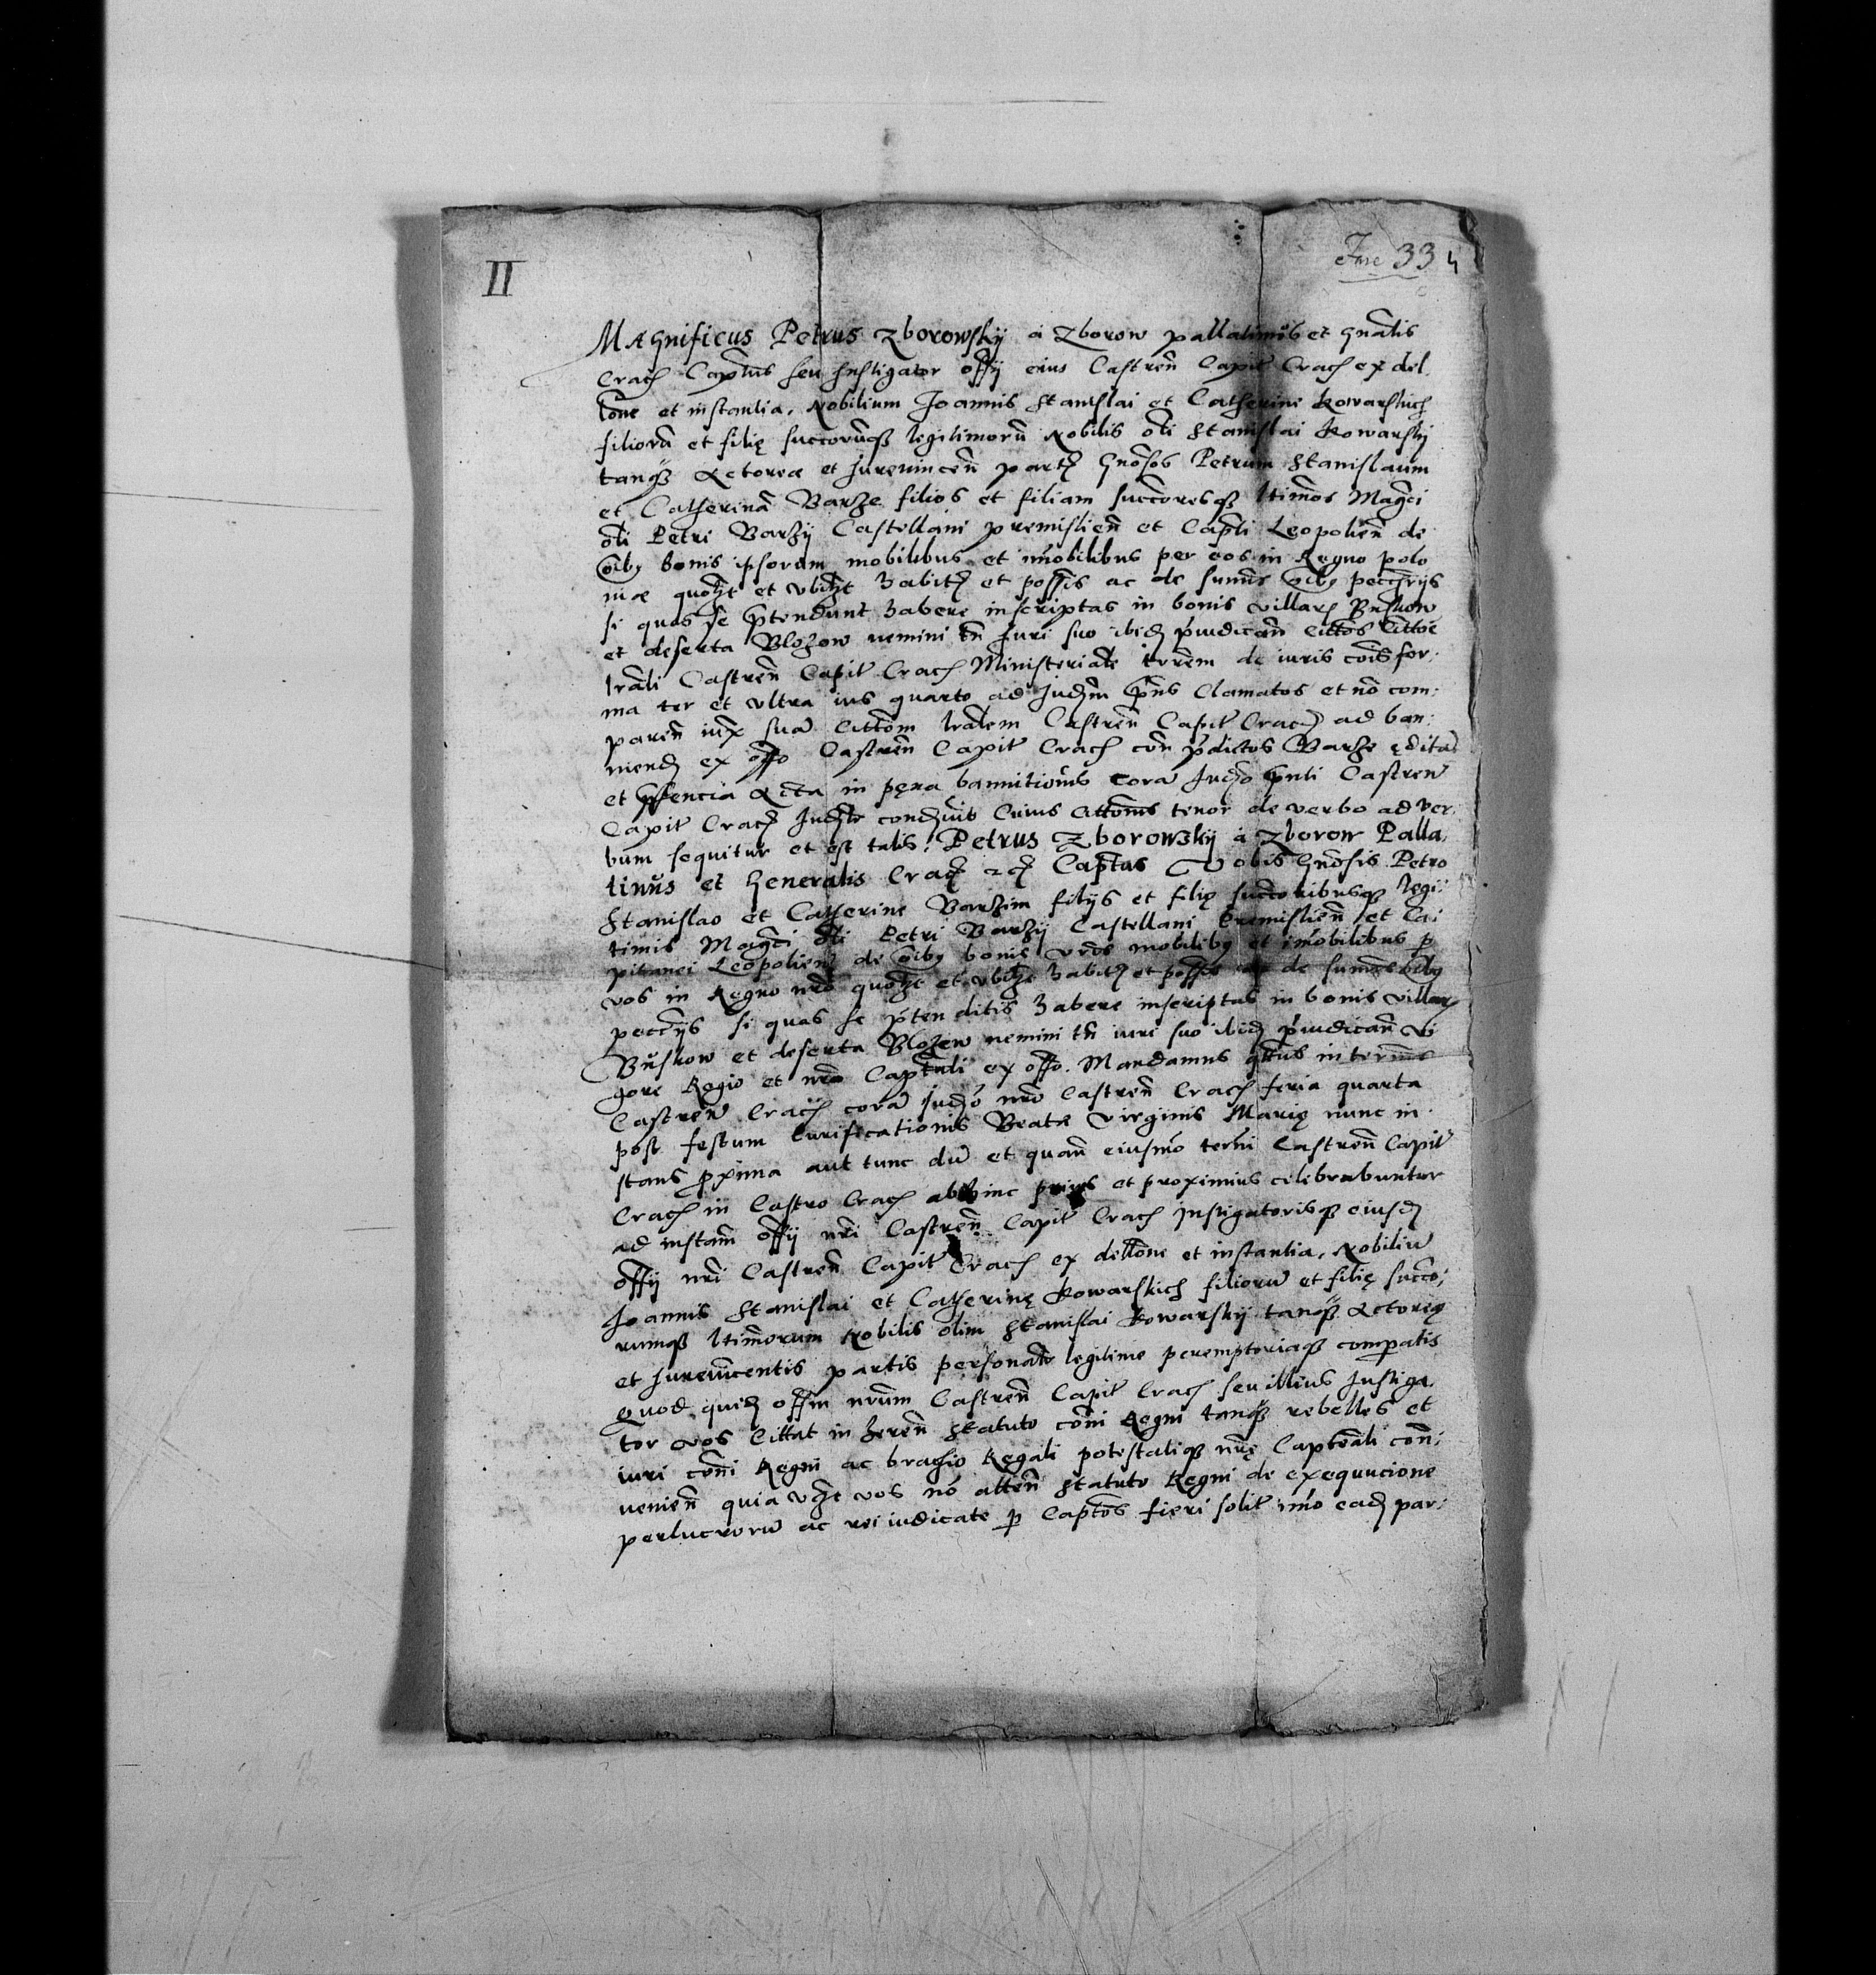 II
33 4
Magnificus Petrus Zborowskij a Zborow pallatinus et gnalis
Crac Captus seu Instigator offij eius Castren Capit Crac ex del
tone et instantia, Nobilium Joannis Stanislai et Catherine Kowarskich
filioru et filię succorumqz legitimoru Nobilis oli Stanislai Kowarskij
tanqz Actorea et Jurevincen part gnosos Petrum Stanislaum
et Catherina Barze filios et filiam succoresqz ltimos Magci
oli Petri Barzij Castellani premislien et Capti Leopolien de
oibus bonis ipsorum mobilibus et imobilibus per eos in Regno polo
niæ quozt et vbizt habit et possis ac de sumis oibus peccrijs
si quas se ptendunt habere inscriptas in bonis villar Buskow
et deserta Blozow nemini tn juri suo ibid piudican cittos cittoe
lrali Castren Capit Crac Ministeriale terrem de iuris cois for:
ma ter et ultra ius quarto ad Judm pns clamatos et no com:
paren iux sua cittom lralem Castren Capit Crac ad ban:
niend ex offo Castren Capit Crac con pdictos Barze ędita
et Acta in pęna bannitionis cora Judo pnti Castren
Capit Crac Cuius cittonis tenor de verbo ad ver
bum sequitur et est talis. Petrus Zborowskij a Zborow Palla,
tinus et Generalis Crac zc Captas Vobis Gnosis Petro
Stanislao et Catherine Barzim filijs et filię succoribusqz legi:
timis Magci oli Petri Barzij Castellani premislien et Ca:
pitanei Leopolien de oibus bonis vris mobilibus et imobilibus p
vos in Regno nro quozt et vbizt habit et possis de sumis oibus
peccrijs si quas se ptenditis habere inscriptas in bonis villar
Buskow et deserta Blozew nemini tn iuri suo ibid piudican vi
gore Regio et nro Captali ex offo. Mandamus qtus in termis
Castren Crac cora judo nro Castren Crac feria quarta
post festum purificationis Beatæ virginis Marię nunc in
stans pxima aut tunc du et quan eiusmo termi Castren Capit
Crac in Castro Crac abhinc prius et proximius celebrabuntur
ad instam offij nri Castren Capit Crac Instigatorisqz eiusd
offij nri Castren Capit Crac ex deltone et instantia, Nobiliu
Joannis Stanislai et Catherinę Kowarskich filioru et filię succo:
rumqz ltimorum Nobilis olim Stanislai Kowarskij tanqz Actoreę
et Jurevincentis partis personalr legitime peremptorieqz compatis
Quod quid offm nrum Castren Capit Crac seu illius Instiga,
tor vos cittat inheren statuto comi Regni tanqz rebelles et
iuri comi Regni ac brachio Regali potestatiqz nrę Captali con:
uenien quia vzt vos no atten statuto Regni de exequucione
perlucroru ac rei iudicate p Captos fieri solit imo ead par: